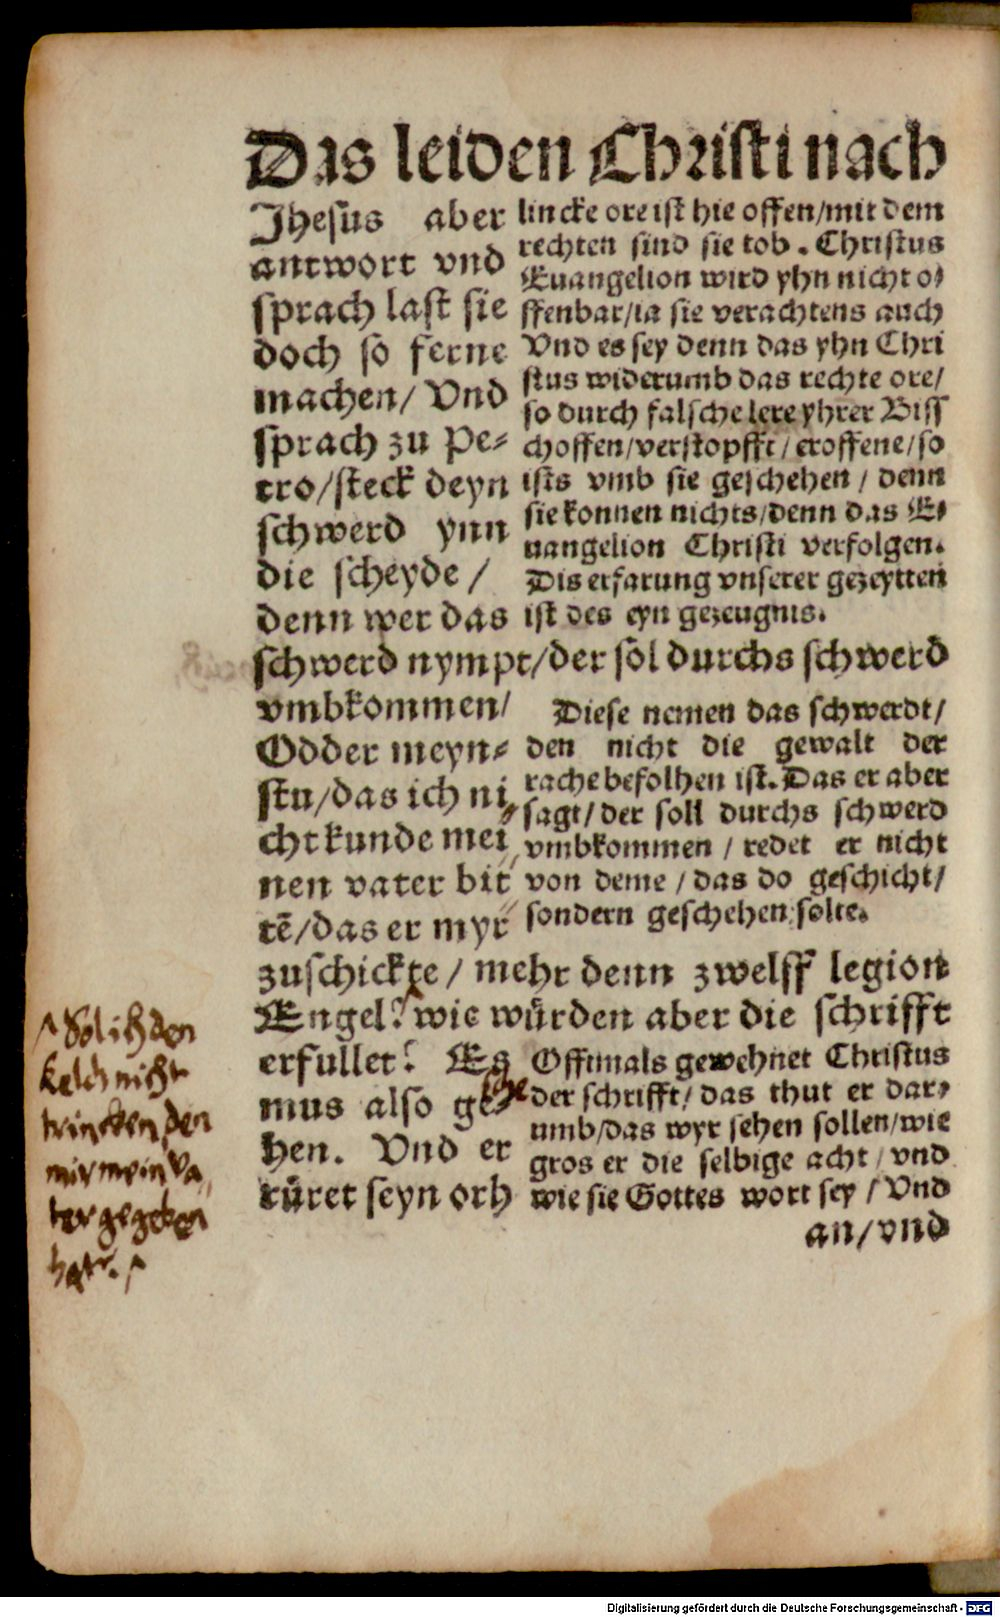 Das leiden Christi nach
Jhesus aber
antwort vnd
sprach last sie
doch so ferne
machen/ Vnd
sprach zu Pe⸗
tro/steck deyn
schwerd ynn
die scheyde /
denn wer das
lincke ore ist hie offen/mit dem
rechten sind sie tob. Christus
Euangelion wird yhn nicht o⸗
ffenbar/ia sie verachtens auch
Vnd es sey denn das yhn Chri
stus widerumb das rechte ore/
so durch falsche lere yhrer Biss
choffen/verstopfft/ eroffene/so
ists vmb sie geschehen / denn
sie konnen nichts/denn das E⸗
uangelion Christi verfolgen.
Dis erfarung vnserer gezeytten
ist des eyn gezeugnis.
schwerd nympt/der sol durchs schwerd
vmbkommen/
Odder meyn⸗
stu/das ich ni
cht kunde mei
nen vater bit
tē/das er myr
Diese nemen das schwerdt/
den nicht die gewalt der
rache befolhen ist. Das er aber
sagt/ der soll durchs schwerd
vmbkommen / redet er nicht
von deme / das do geschicht/
sondern geschehen solte.
zuschickte / mehr denn zwelff legion
Engel? wie würden aber die schrifft
erfullet? Es
mus also ge⸗
hen. Vnd er
rüret seyn orh
Offtmals gewehnet Christus
der schrifft/ das thut er dar⸗
umb/das wyr sehen sollen/wie
gros er die selbige acht / vnd
wie sie Gottes wort sey / Vnd
an/vnd
Sol ich den
kelch nicht
trincken, den
mir mein va
ter gegeben
hatt.
Digitalisierung gefördert durch die Deutsche Forschungsgemeinschaft - DFG